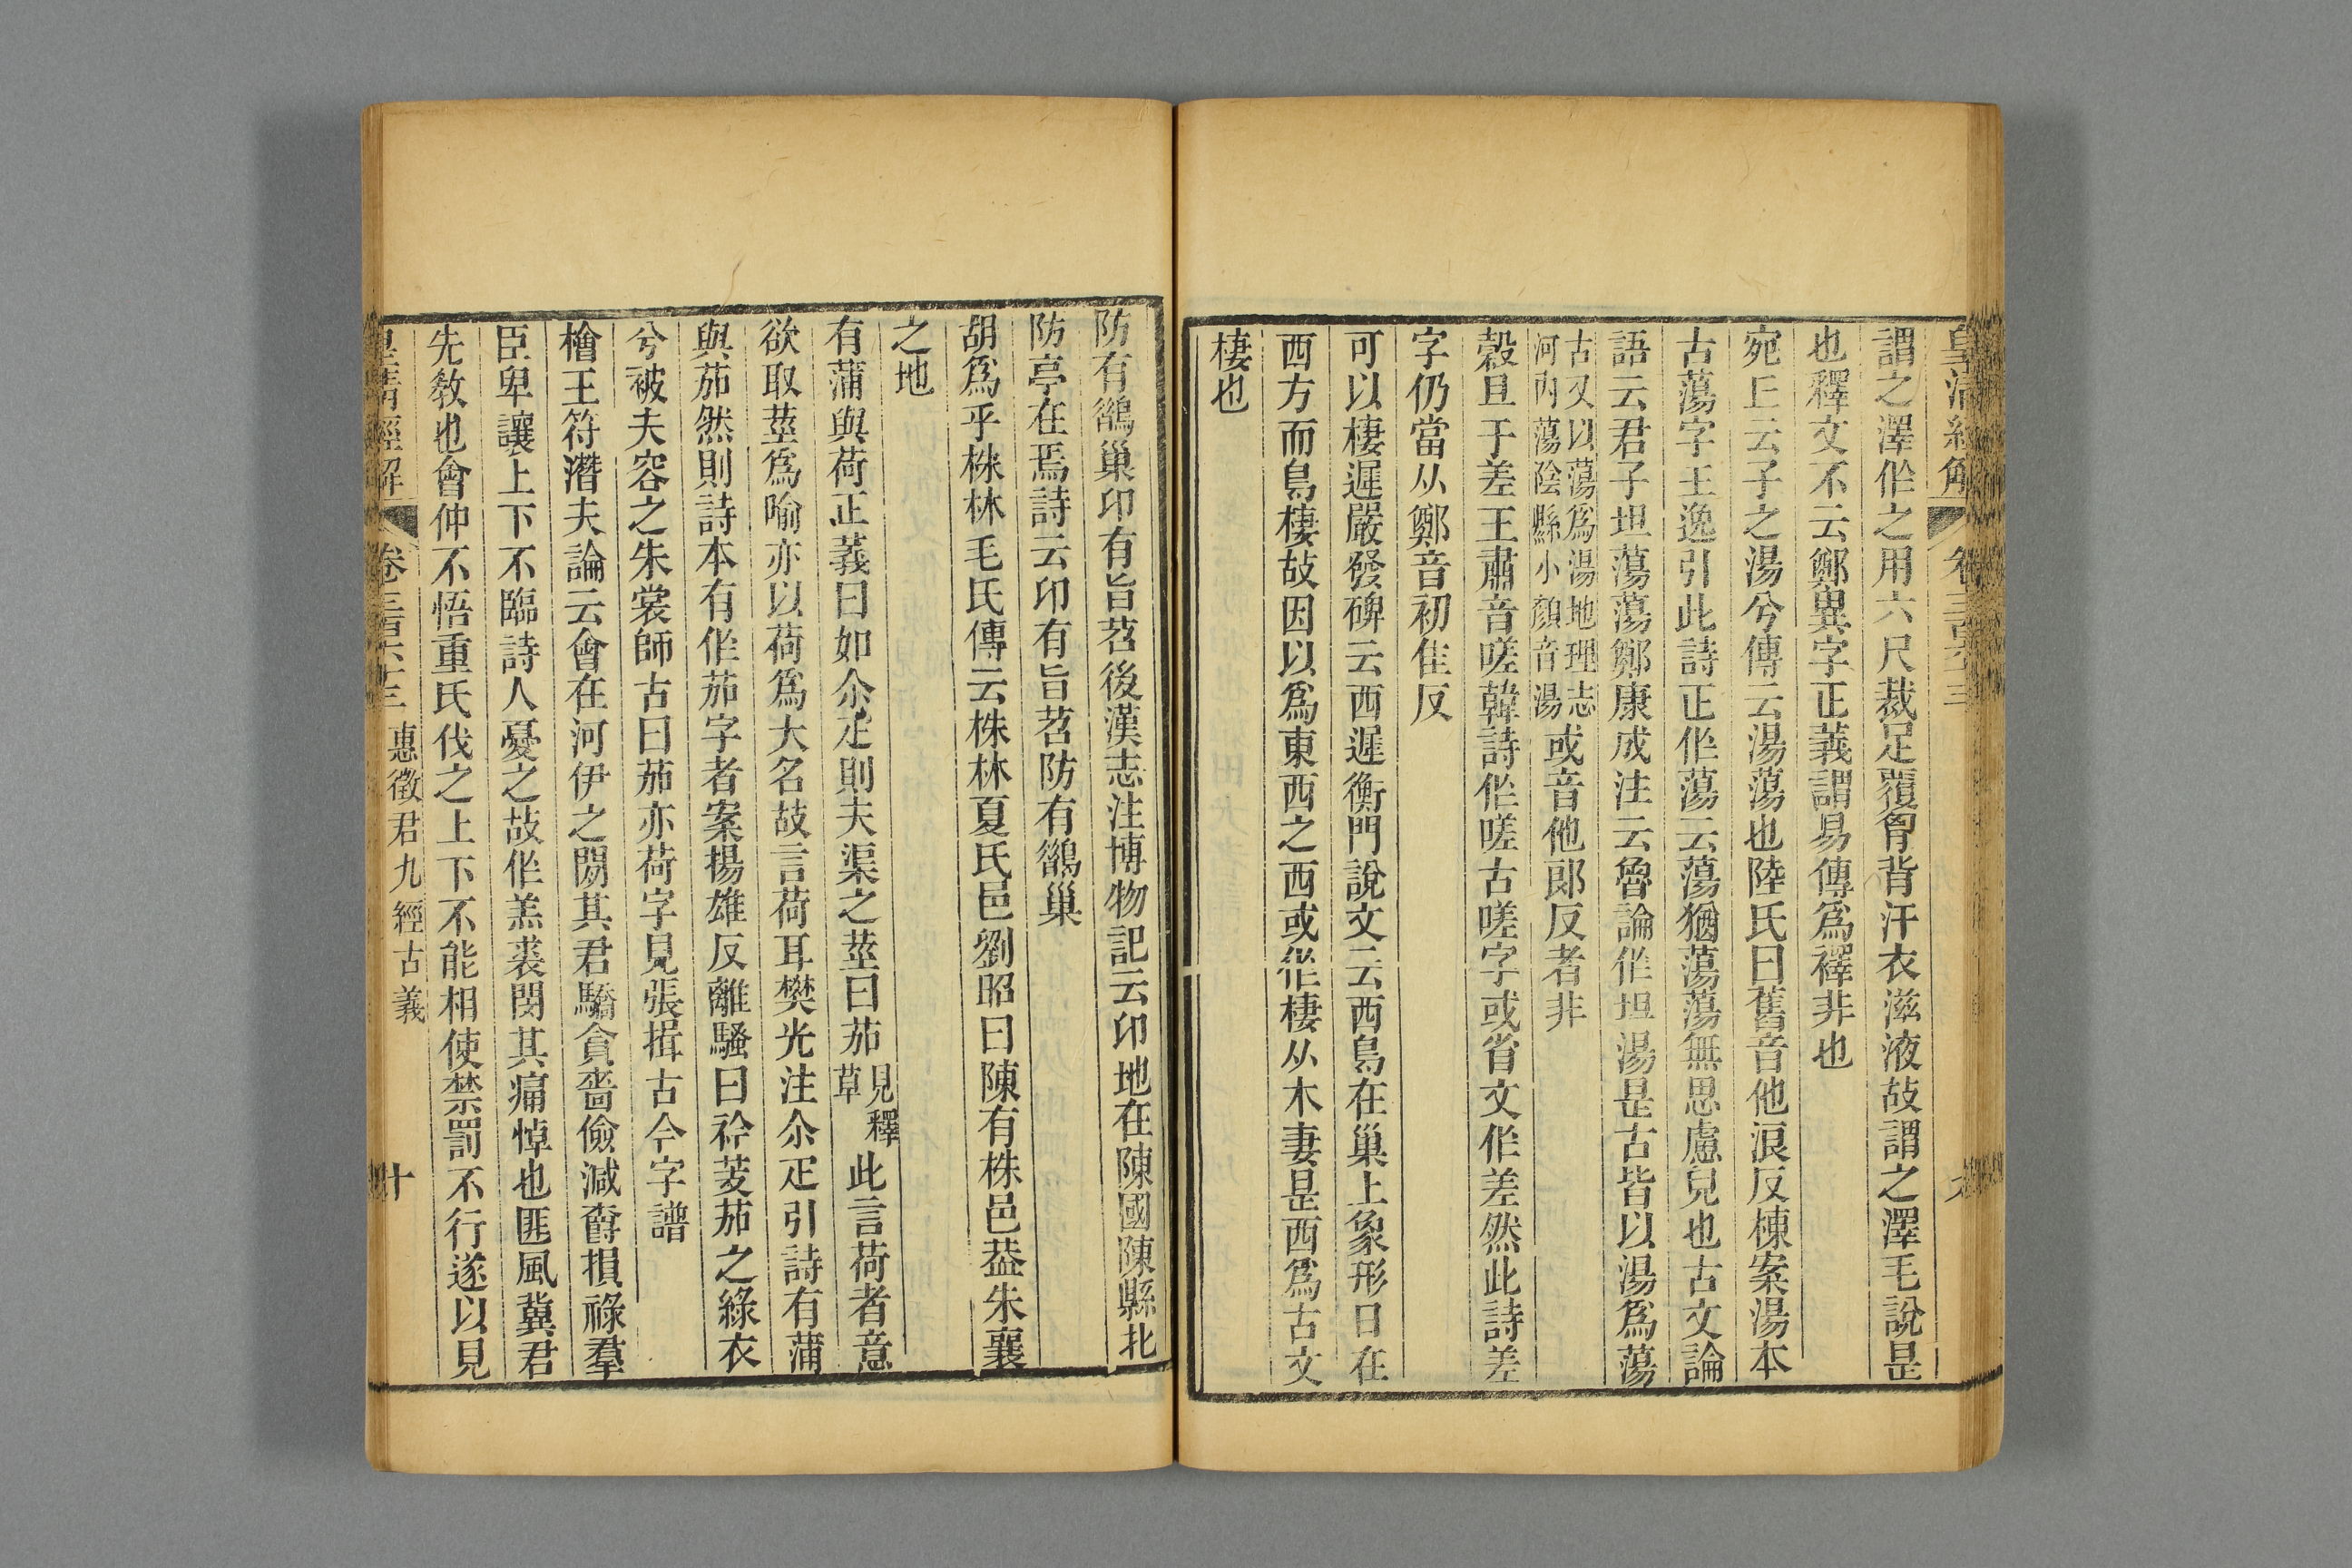 皇清經解 卷三百六十三 九
謂之澤作之用六尺裁足覆胷背汗衣滋液故謂之澤毛說是
也釋文不云鄭異字正義謂易傳爲襗非也
宛丘云子之湯兮傳云湯蕩也陸氏曰舊音他浪反棟案湯本
古蕩字王逸引此詩正作蕩云蕩猶蕩蕩無思慮皃也古文論
語云君子坦蕩蕩鄭康成注云魯論作坦湯是古皆以湯爲蕩
古又以蕩爲湯地理志河內蕩陰縣小顏音湯或音他郎反者非
穀旦于差王肅音嗟韓詩作嗟古嗟字或省文作差然此詩差
字仍當从鄭音初隹反
可以棲遲嚴發碑云西遲衡門說文云西鳥在巢上象形日在
西方而鳥棲故因以爲東西之西或作棲从木妻是西爲古文
棲也
防有鵲巢卬有旨苕後漢志注博物記云卬地在陳國陳縣北
防亭在焉詩云卬有旨苕防有鵲巢
胡爲乎株林毛氏傳云株林夏氏邑劉昭曰陳有株邑葢朱襄
之地
有蒲與荷正義曰如尒疋則夫渠之莖曰茄見釋草此言荷者意
欲取莖爲喻亦以荷爲大名故言荷耳樊光注尒疋引詩有蒲
與茄然則詩本有作茄字者案揚雄反離騷曰衿芰茄之綠衣
兮被夫容之朱裳師古曰茄亦荷字見張揖古今字譜
檜王符潛夫論云會在河伊之閒其君驕貪嗇儉減爵損祿羣
臣卑讓上下不臨詩人憂之故作羔裘閔其痛悼也匪風冀君
先敎也會仲不悟重氏伐之上下不能相使禁罰不行遂以見
皇清經解 卷三百六十三 惠徵君九經古義 十